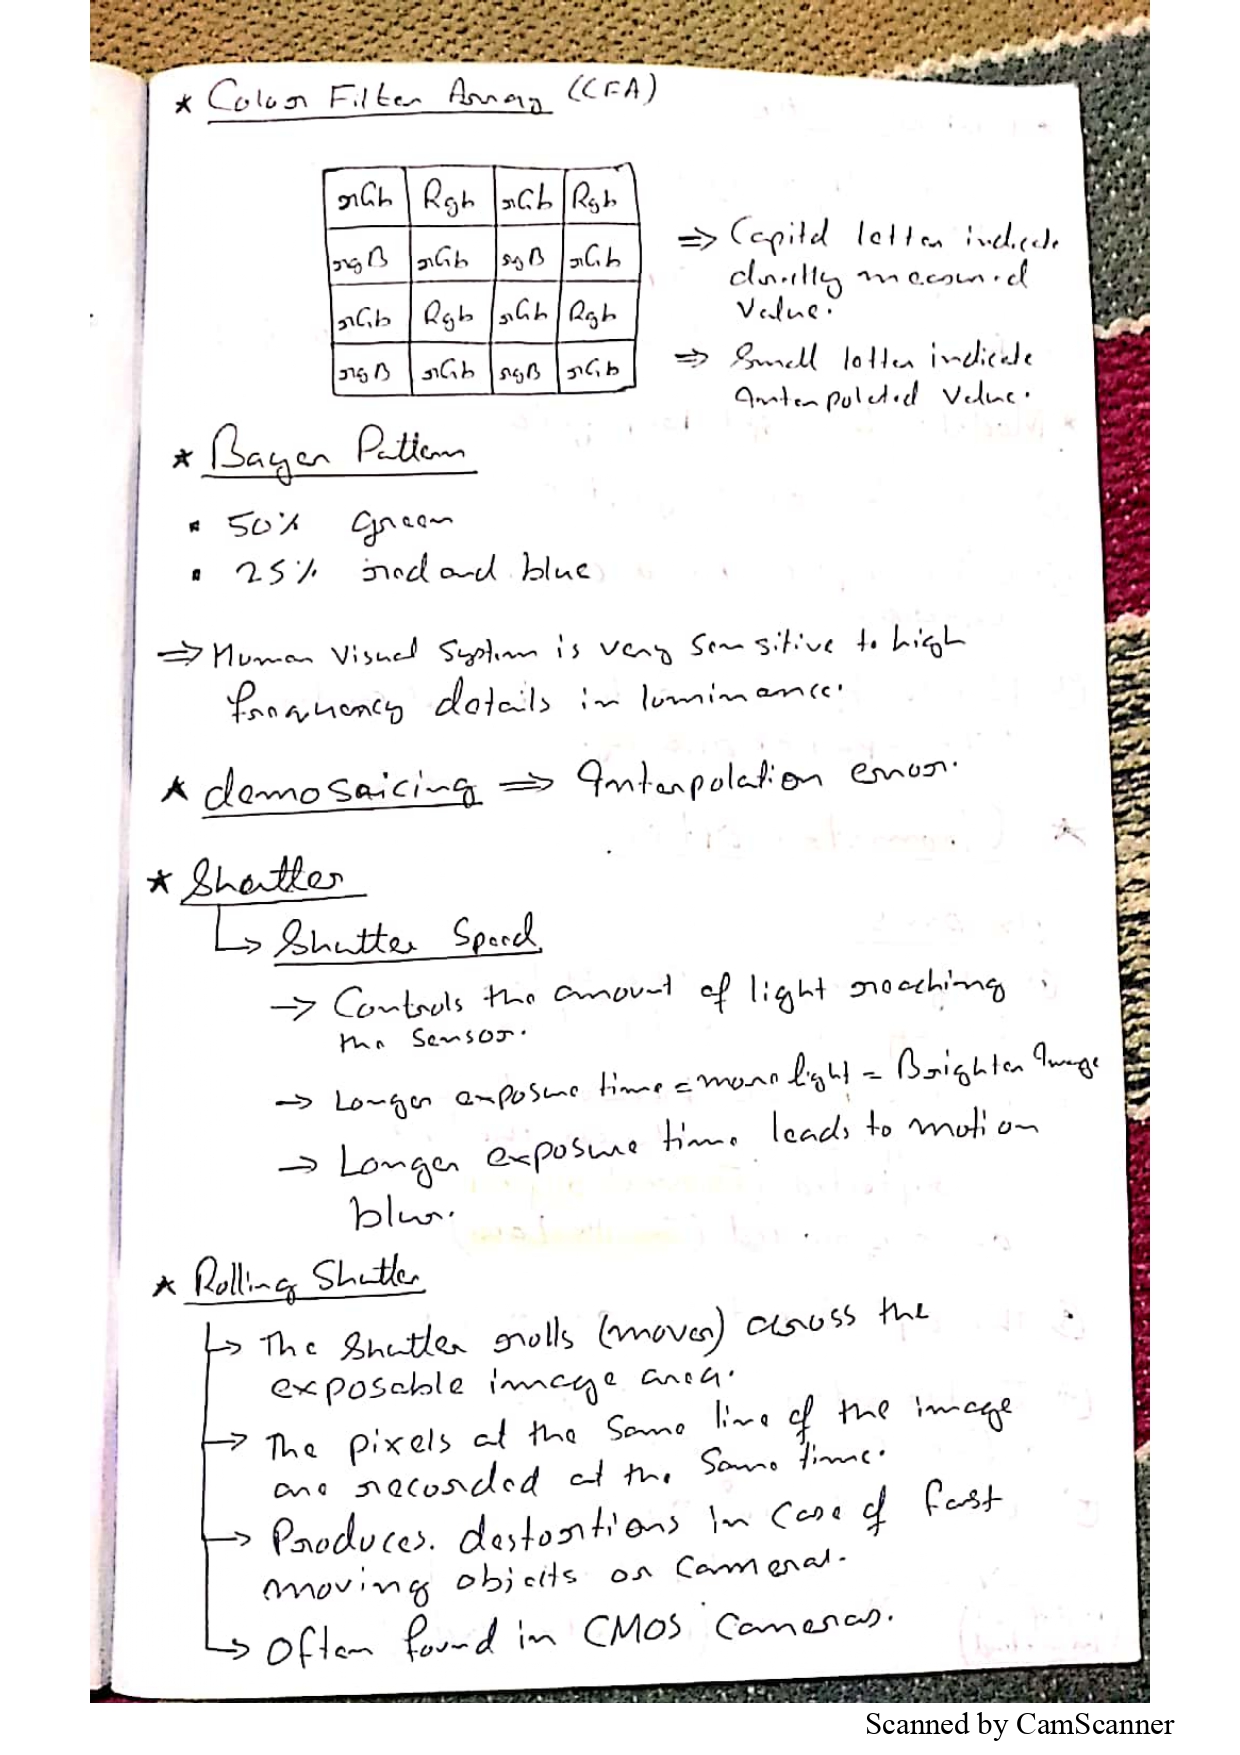 * Colour Filter Array (CFA)
rGb Rgb rGb Rgb
rgB rGb rgB rGb
rGb Rgb rGb Rgb
rgB rGb rgB rGb
⇒ Capital letter indicate
directly measured
value.
⇒ Small letter indicate
Interpolated value.
* Bayer Pattern
▪ 50% green
▪ 25% red and blue
⇒ Human Visual System is very sensitive to high
frequency details in luminance.
* demosaicing ⇒ Interpolation error.
* Shutter
↳ Shutter Speed
→ Controls the amount of light reaching
the sensor.
→ Longer exposure time = more light = Brighter Image
→ Longer exposure time leads to motion
blur.
* Rolling Shutter
↳ The Shutter rolls (moves) across the
exposable image area.
→ The pixels at the same line of the image
are recorded at the same time.
→ Produces. destortions in case of fast
moving objects or camera.
↳ Often found in CMOS Cameras.
Scanned by CamScanner